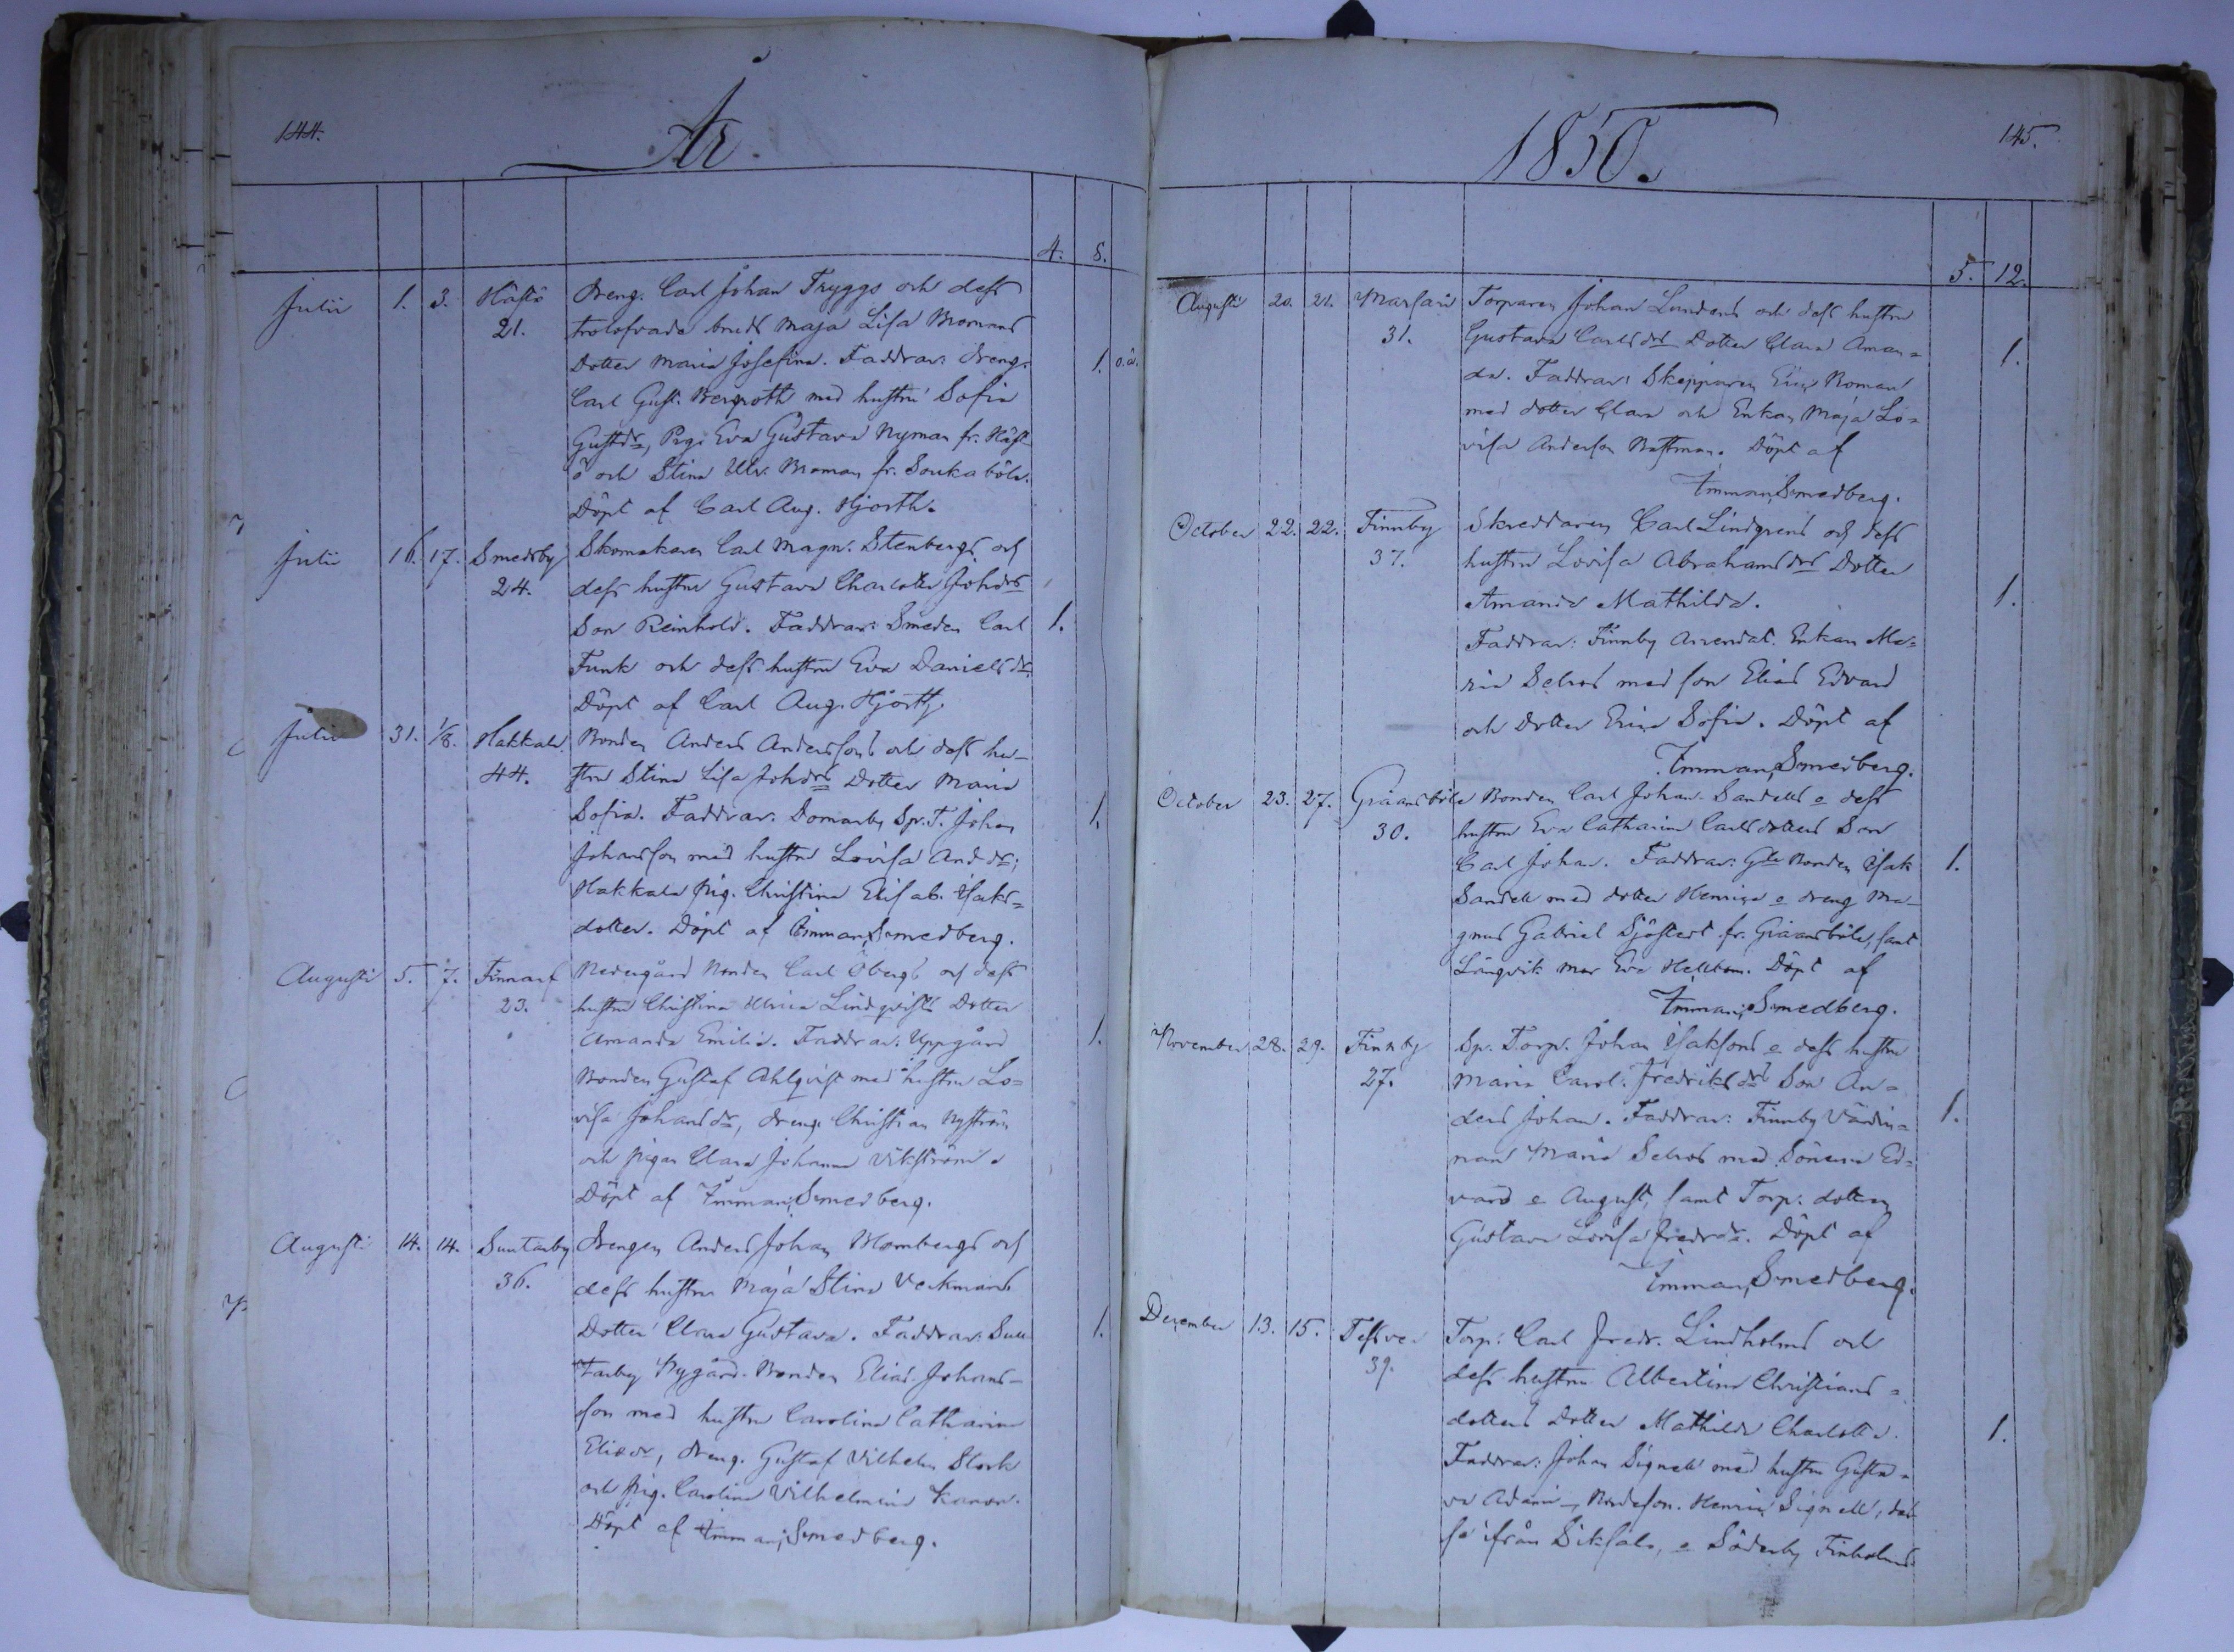 144.
År
4. 8.
Julii 1. 3. Hästö Dreng. Carl Johan Tryggs och dess
21. trolofvade bruds Maja Lisa Momans
Dotter Maria Josefina. Faddrar: Dreng. 1. o.ä.
Carl Gust. Bergroth med hustru Sofia
Gustdr, Pig. Eva Gustava Nyman fr. Häst-
ö och Stina Ulr. Moman fr. Soukaböle.
Döpt af Carl Aug. Hjorth.
Julii 16. 17. Smedsby Skomakaren Carl Magn. Stenbergs och
24. dess hustru Gustava Charlotta Johdrs
Son Reinhold. Faddrar: Smeden Carl 1.
Funk och dess hustru Eva Danielsdr.
Döpt af Carl Aug. Hjorth.
Julii 31. 1/8. Hakkala Bonden Anders Anderssons och dess hu-
44. stru Stina Lisa Johdrs Dotter Maria
Sofia. Faddrar: Domarby Sp. T. Johan 1.
Johansson med hustru Lovisa Anddr;
Hakkala pig. Christina Elisab. Isaks=
dotter. Döpt af Imman. Smedberg.
Augusti 5. 7. Finnarf Nedergård Bonden Carl Öbergs och dess
23. hustru Christina Ulrica Lindqvists Dotter
Amanda Emilia. Faddrar: Uppgård 1.
Bonden Gustaf Ahlqvist med hustru Lo=
visa Johansdr, dreng. Christian Nyström
och pigan Clara Johanna Vikström.
Döpt af Imman. Smedberg.
Augusti 14. 14. Suutarby Drengen Anders Johan Blombergs och
36. dess hustru Maja Stina Veckmans
Dotter Clara Gustava. Faddrar: Suu 1.
tarby Nygård Bonden Elias Johans-
son med hustru Carolina Catharina
Eliedr, dreng. Gustaf Vilhelm Stork
och pig. Carolina Vilhelmina
Döpt af Imman. Smedberg.
1850.
145.
5. 12.
Augusti 20. 21. Marsari Torparen Johan Lundens och dess hustru
31. Gustava Carlsdrs Dotter Clara Aman= 1.
da. Faddrar: Skepparen Eric Roman
med dotter Clara och Enkan Maja Lo=
visa Anderson Döpt af
Imman. Smedberg.
October 22. 22. Finnby Skreddaren Carl Lindgrens och dess
37. hustru Lovisa Abrahamsdrs Dotter
Amanda Mathilda. 1.
Faddrar: Finnby Arrendat. Enkan Ma=
ria Selros med son Elias Edvard
och dotter Erica Sofia. Döpt af
Imman. Smedberg.
October 23. 27. Gräansböle Bonden Carl Johan Sandells o dess
30. hustru Eva Catharina Carlsdotters Son
Carl Johan. Faddrar: Gle Bonden Isak 1.
Sandell med dotter Henrica o dreng Ma-
gnus Gabriel Sjöstedt fr. Gräansböle, samt
Långvik Mor Eva Hellbom. Döpt af
Imman. Smedberg.
November 28. 29. Finnby Sp. Torp. Johan Isaksons o dess hustru
27. Maria Carol. Fredriksdrs Son An=
ders Johan. Faddrar: Finnby Värdin= 1.
nan Maria Selros med Sönerna Ed=
vard o August, samt Torp. dotter
Gustava Lovisa Fredrdr. Döpt af
Imman. Smedberg.
December 13. 15. Teskve Torp. Carl Fredr. Lindholms och
39. dess hustru Albertina Christians=
dotters Dotter Mathilda Charlotta. 1.
Faddrar: Johan Signell med hustru Gusta=
va Adami, Bondeson. Henric Signell, des
se ifrån Siksalo, o Söderby